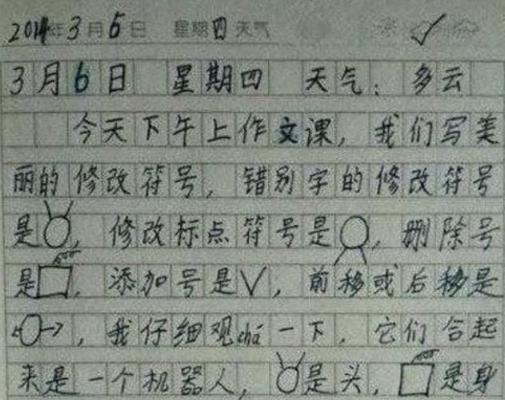 2014年3月6日 星期四 天气
3月6日 星期四 天气：多云
今天下午上作文课，我们写美
丽的修改符号，错别字的修改符号
是，修改标点符号是，删除号
是，添加号是V，前移或后移是
，我仔细观chá一下，它们合起
来是一个机器人，是头，是身